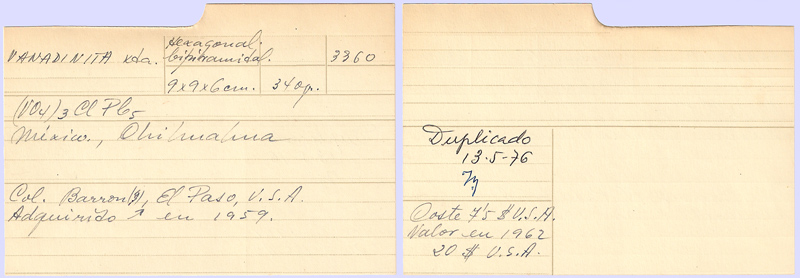 VANADINITA xda.
Hexagonal.
bipiramidal.
3360
9x9x6 cm.
340 gr.
(VO4)3 Cl Pb5
México., Chihuahua
Col. Barron(9), El Paso, U.S.A.
Adquirido ↑ en 1959.
Duplicado
13-5-76
Coste 7'5 $ U.S.A.
Valor en 1962
20 $ U.S.A.